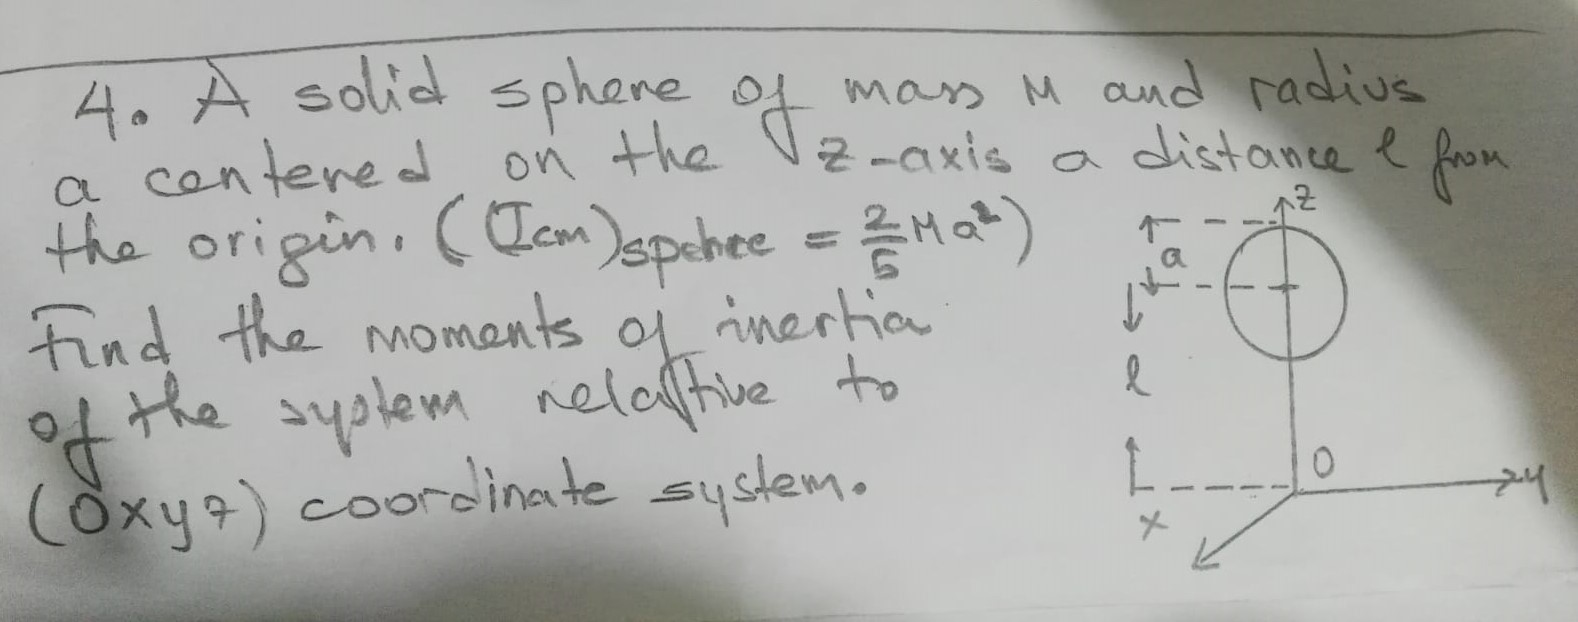 4. A solid sphere of mass M and radius
a centered on the z-axis a distance l from
the origin. ((Icm)spehre = 2/5 Ma²)
Find the moments of inertia
of the system relative to
(Oxyz) coordinate system.
z
a
l
O
y
x